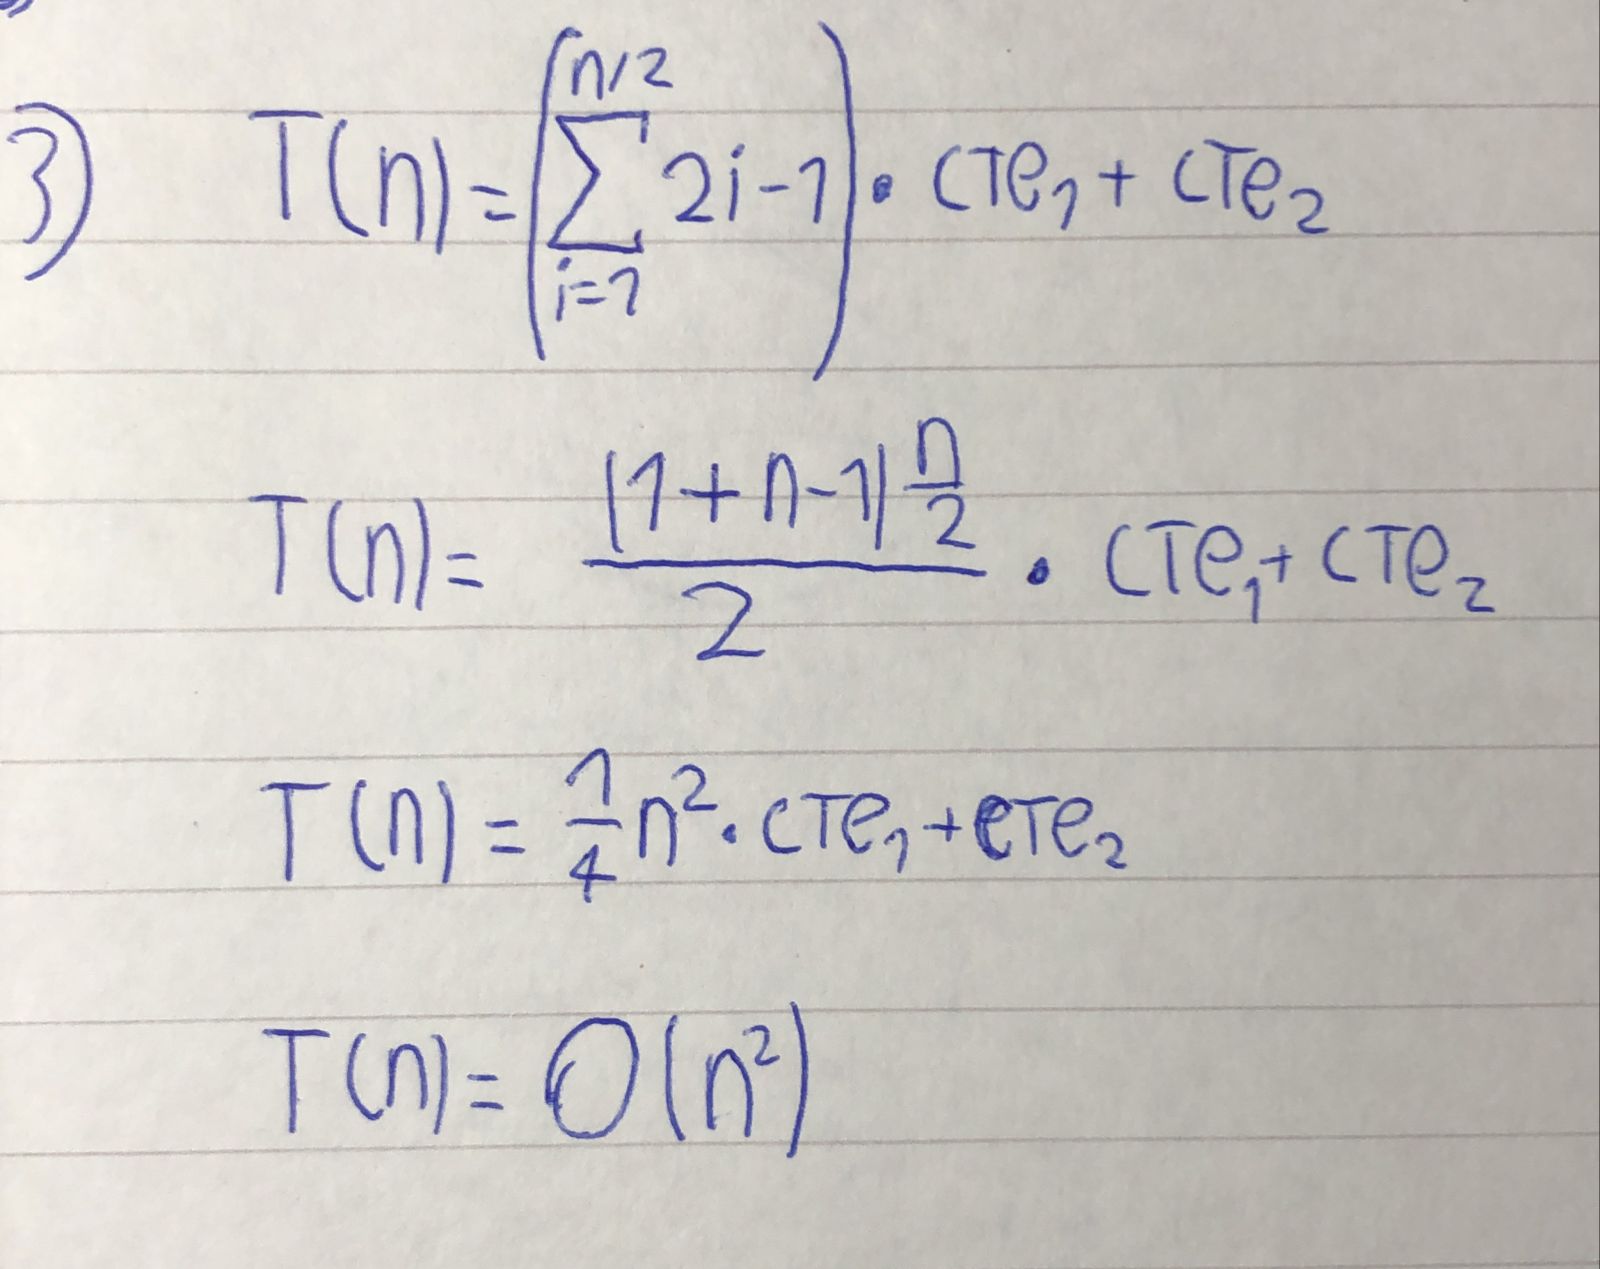 3) T(n) = (∑_{i=1}^{n/2} 2i-1) · cTe₁ + cTe₂
T(n) = \frac{(1+n-1)\frac{n}{2}}{2} · cTe₁ + cTe₂
T(n) = \frac{1}{4} n² · cTe₁ + cTe₂
T(n) = O(n²)